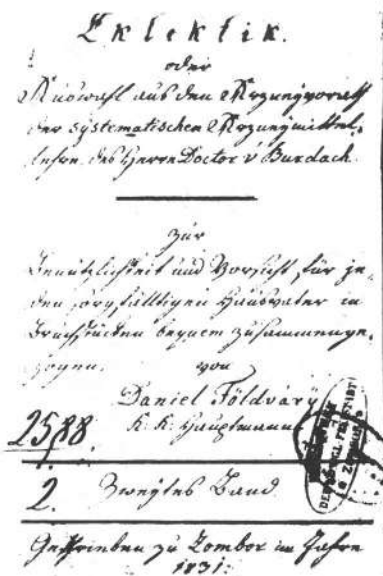 Eklektik.
oder
Auswahl aus den Arzneyvorrath
der systematischen Arzneymittel-
lehre des Herrn Doctor v Burdach
zur
Benützlichkeit und Vorsicht, für je-
den sorgfältigen Hausvater in
Bruchstücken bequem zusammenge-
zogen. von
Daniel Földváry
K. K. Hauptmann
2588
2. Zweytes Band
Geschrieben zu Zombor im Jahre
1831.